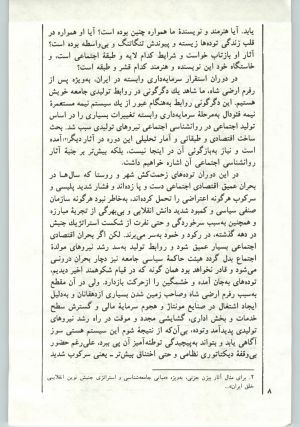 یابد. آیا هنرمند و نویسندهٔ ما همواره چنین بوده است؟ آیا او همواره در
قلب زندگی توده‌ها زیسته و پیوندش تنگاتنگ و بی‌واسطه بوده است؟
آثار او بازتاب خواست و شرایط کدام لایه و طبقهٔ اجتماعی است، و
خاستگاه خود این نویسنده و هنرمند کدام قشر و طبقه است؟
در دوران استقرار سرمایه‌داری وابسته در ایران، به‌ویژه پس از
رفرم ارضی شاه، ما شاهد یك دگرگونی در روابط تولیدی جامعه خویش
هستیم. این دگرگونی روابط به‌هنگام عبور از یك سیستم نیمه مستعمرهٔ
نیمه فئودال به‌مرحلهٔ سرمایه‌داری وابسته تغییرات بسیاری را در اساس
تولید اجتماعی در روانشناسی اجتماعی نیروهای تولیدی سبب شد. بحث
ساخت اقتصادی و طبقاتی و آمار تحلیلی این دوره در آثار دیگر(۲) آمده
است و نیاز به‌بازگوئی آن در اینجا نیست. بلکه بیش‌تر بر جنبهٔ آثار
روانشناسی اجتماعی آن اشاره خواهیم داشت.
در این دوران توده‌های زحمت‌کش شهر و روستا که سال‌ها در
بحران عمیق اقتصادی اجتماعی دست و پا زده‌اند و فشار شدید پلیسی و
سرکوب هرگونه اعتراضی را تحمل کرده‌اند، به‌خاطر نبود هرگونه سازمان
صنفی سیاسی و کمبود شدید دانش انقلابی و بی‌بهرگی از تجربهٔ مبارزه
و همچنین به‌سبب سرخوردگی و حتی نفرت از شکست استراتژیك جنبش
در دهه گذشته، در رکود و خمود به‌سر می‌برند. لکن اگر بحران اقتصادی
اجتماعی بسیار عمیق شود و روابط تولید به‌سد رشد نیروهای مولدهٔ
اجتماع بدل گردد هیئت حاکمهٔ سیاسی جامعه نیز دچار بحران درونی
می‌شود و قادر نخواهد بود همان گونه که در قیام شکوهمند اخیر دیدیم،
توده‌های به‌جان آمده و خشمگین را ازحرکت بازدارد. ولی در آن مقطع
به‌سبب رفرم ارضی شاه وصاحب زمین شدن بسیاری ازدهقانان و به‌دلیل
ایجاد اشتغال در صنایع مونتاژ و هجوم سرمایهٔ مالی و گسترش سطح
خدمات و بخش اداری، گشایشی مجدد و موقت در راه رشد نیروهای
تولیدی پدیدآمد وتوده، بی‌آن‌که از نتیجهٔ شوم این سیستم هستی سوز
آگاهی یابد و بتواند به‌پیچیدگی توطئه‌آمیز آن پی ببرد، علی‌رغم حضور
بی‌وقفهٔ دیکتاتوری نظامی و حتی اختناق بیش‌تر ـ یعنی سرکوب شدید
۲. برای مثال آثار بیژن جزنی، به‌ویژه «مبانی جامعه‌شناسی و استراتژی جنبش نوین انقلابی
خلق ایران»...
۸